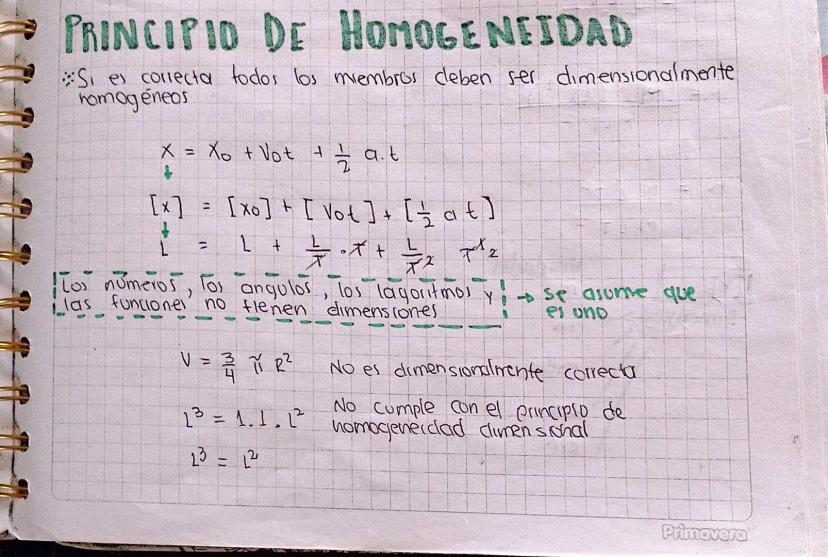 PRINCIPIO DE HOMOGENEIDAD
Si es correcta todos los miembros deben ser dimensionalmente
homogéneos
x = x₀ + V₀t + 1/2 a.t
[x] = [x₀] + [V₀t] + [1/2 a t]
L = L + L/T . T + L/T² T²
Los números, los angulos, los lagoritmos y → se asume que
las funciones no tienen dimensiones es uno
V = 3/4 π R² No es dimensionalmente correcta
L³ = 1.1.L² No cumple con el principio de
homogeneidad dimensional
L³ = L²
Primavera